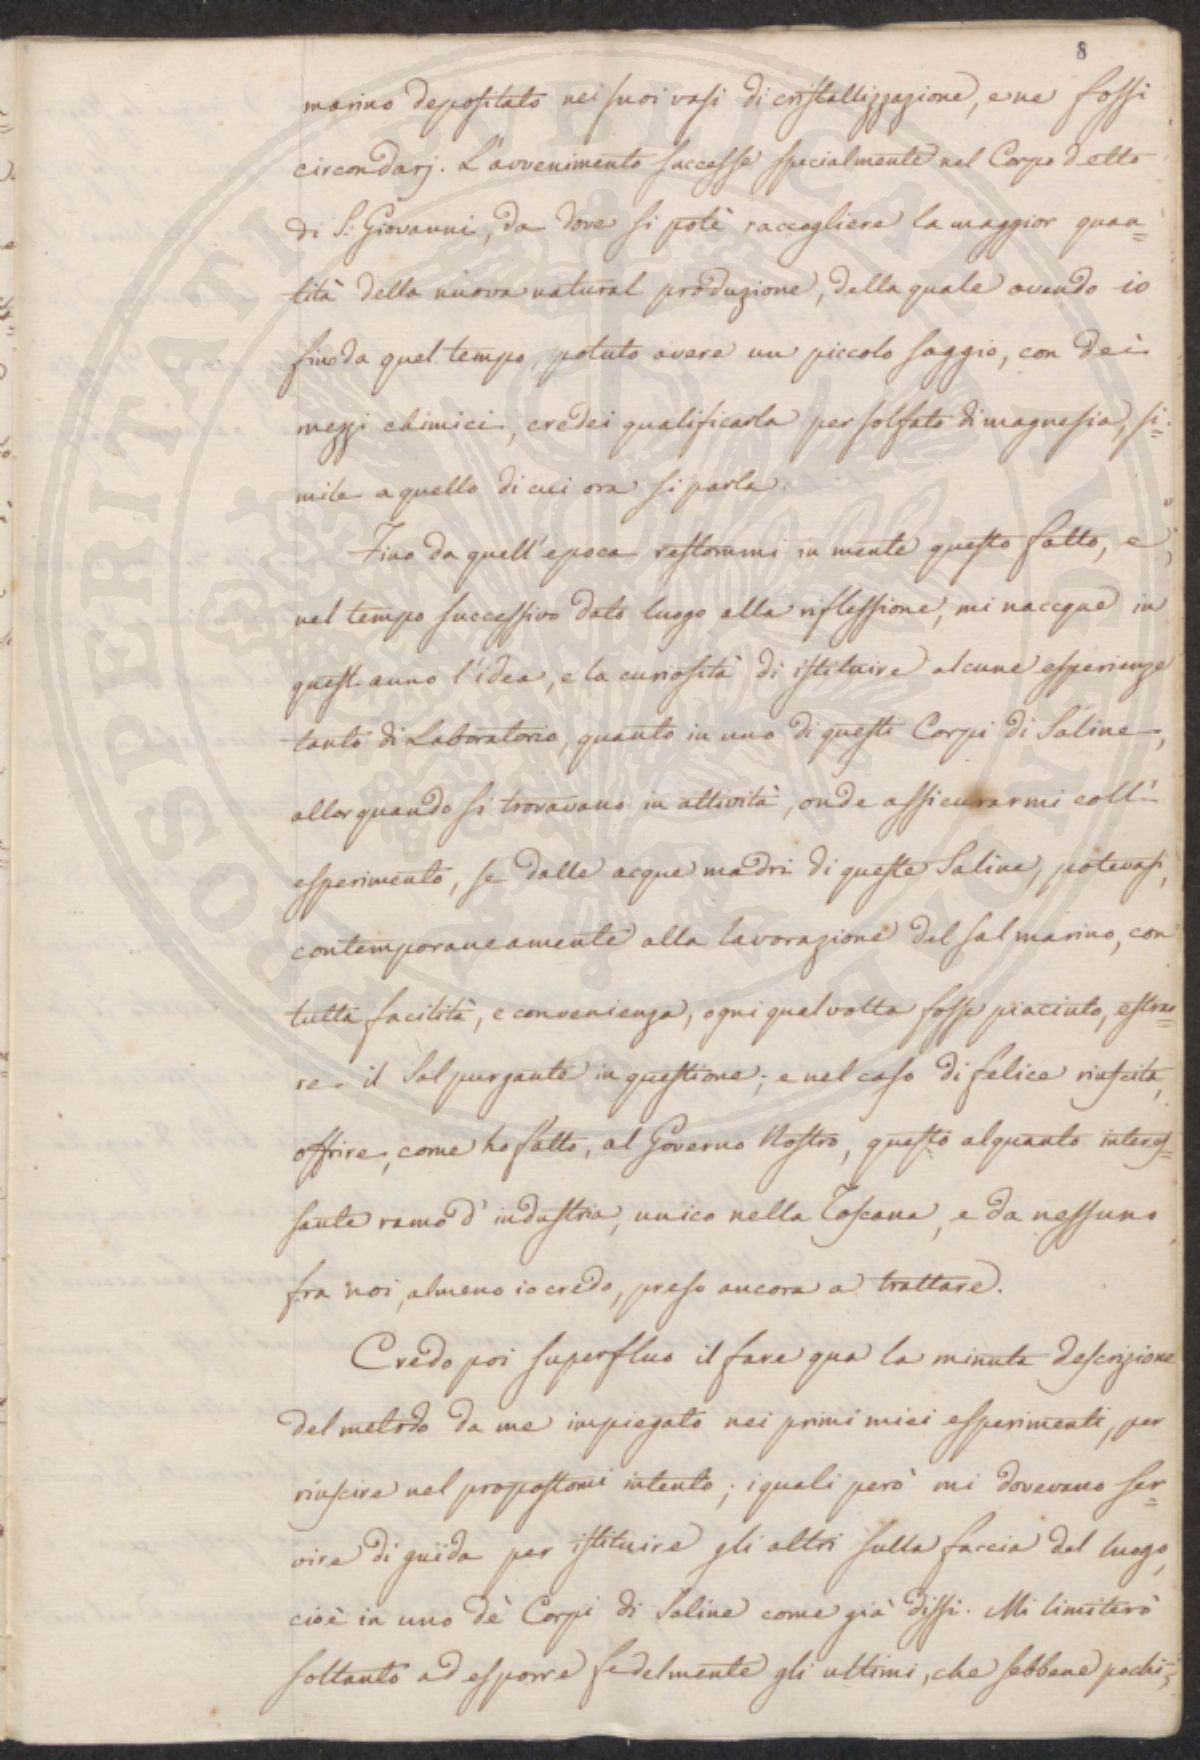 8
marino depositato nei suoi vasi di cristallizzazione, e ne fossi
circondarj. L'avvenimento successe specialmente nel Corpo detto
di S: Giovanni, da dove si potè raccogliere la maggior quan=
tità della nuova natural produzione, della quale avendo io
fino da quel tempo, potuto avere un piccolo saggio, con dei
mezzi chimici, credei qualificarla per solfato di magnesia, si=
mile a quello di cui ora si parla.
Fino da quell'epoca restommi in mente questo fatto, e
nel tempo successivo dato luogo alla riflessione, mi nacque in
quest'anno l'idea, e la curiosità di istituire alcune esperienze
tanto di Laboratorio, quanto in uno di questi Corpi di Saline,
allorquando si trovavano in attività, onde assicurarmi coll'
esperimento, se dalle acque madri di queste Saline, potevasi,
contemporaneamente alla lavorazione del sal marino, con
tutta facilità, e convenienza, ogni qual volta fosse piaciuto, estrar=
re il Sal purgante in questione; e nel caso di felice riuscita,
offrire, come ho fatto, al Governo Nostro, questo alquanto interes=
sante ramo d'industria, unico nella Toscana, e da nessuno
fra noi, almeno io credo, preso ancora a trattare.
Credo poi superfluo il fare qua la minuta descrizione
del metodo da me impiegato nei primi miei esperimenti, per
riuscire nel propostomi intento; i quali però mi dovevano ser=
vire di guida per istituire gli altri sulla faccia del luogo,
cioè in uno dè Corpi di Saline come già dissi. Mi limiterò
soltanto ad esporre fedelmente gli ultimi, che sebbene pochi,
PROSPERITATI PUBLICAE AUGENDAE